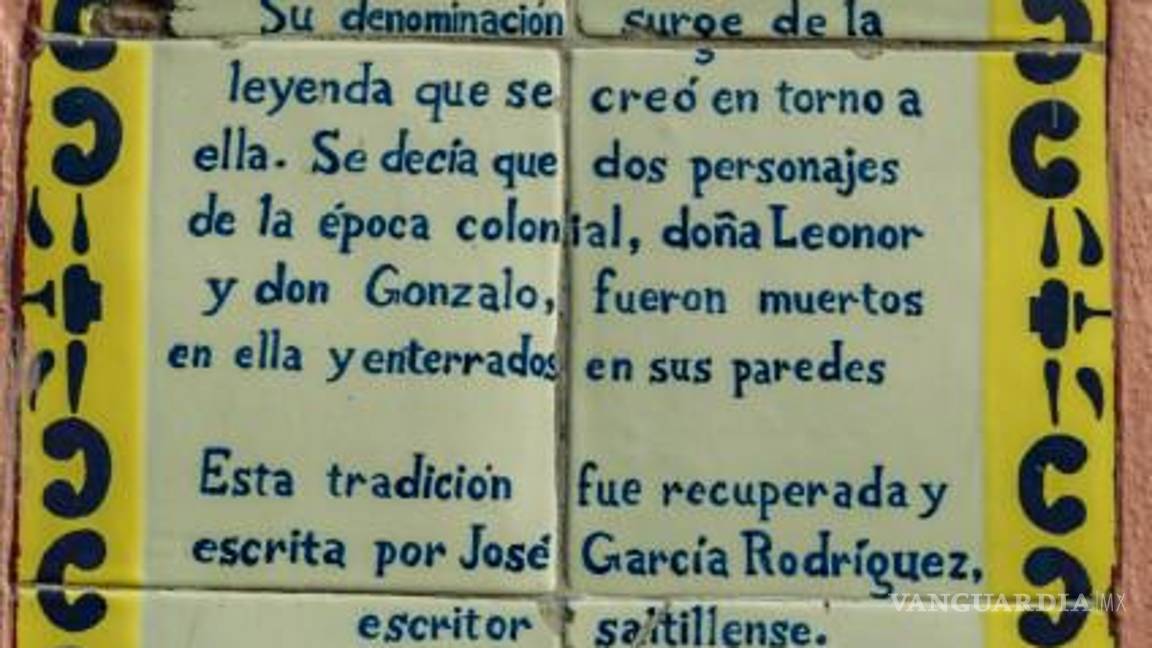 Su denominación surge de la
leyenda que se creó en torno a
ella. Se decía que dos personajes
de la época colonial, doña Leonor
y don Gonzalo, fueron muertos
en ella y enterrados en sus paredes
Esta tradición fue recuperada y
escrita por José García Rodríguez,
escritor saltillense.
VANGUARDIA|MX